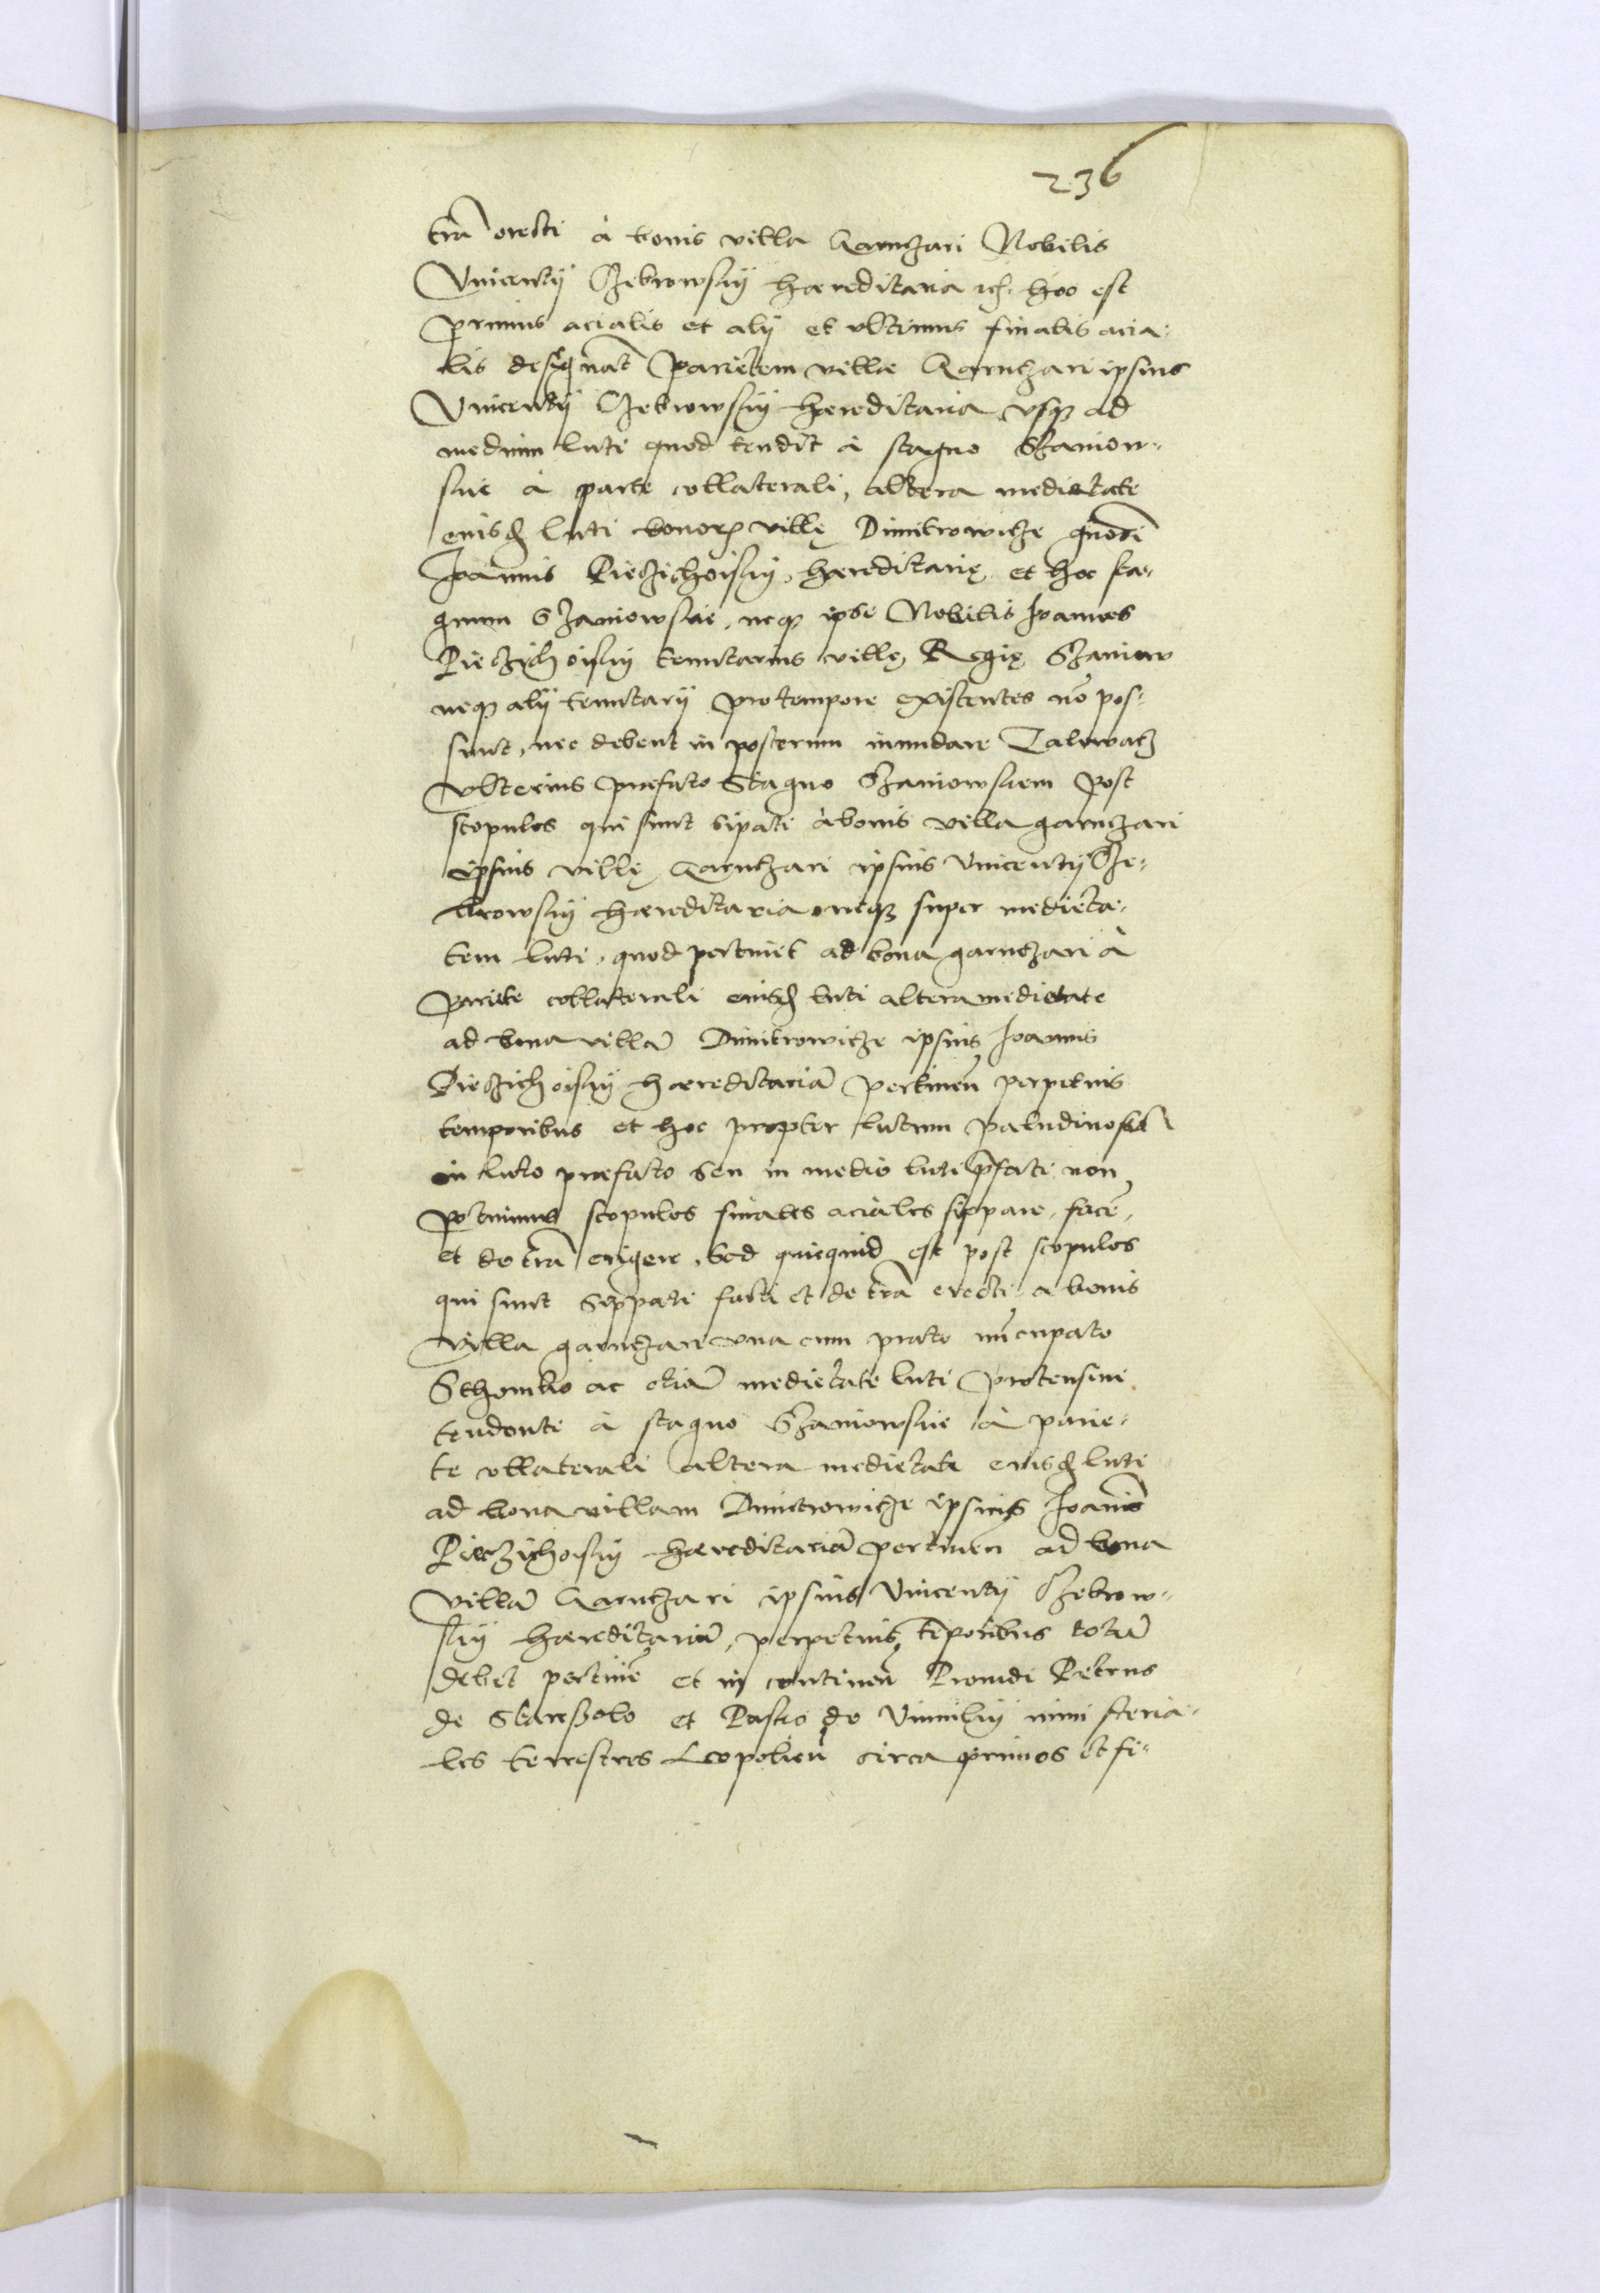 236
tra erecti à bonis villa Garnczari Nobilis
Vincentÿ Czebrowskÿ hæreditaria hoc est
primus acialis et alÿ et vltimus finalis acia-
lis designat parietem villæ Garnczari ipsius
Vincentÿ Czebrowskÿ hæreditaria vsq ad
medium luti quod tendit à stagno Sczaniow-
skie à parte collaterali, altera medietate
eiusd luti bonor villę Dimitrowicze
Joannis Pieczichoiskÿ hæreditarię et hoc sta-
gnum Sczaniowskie, neq ipse Nobilis Joannes
Pieczichoiskÿ tenutarius villę Regię Sczaniow
neq alÿ tenutarÿ pro tempore existentes nō pos-
sunt, nec debent in posterum inundare
vlterius præfato Stagno Sczaniowskiem post
scopulos qui sunt sipati à bonis villa garnczari
ipsius villę Garnczari ipsius Vincentÿ Cze-
browskÿ hæreditaria neq super medieta-
tem luti, quod pertinet ad bona garnczari à
pariete collaterali eiusd luti altera medietate
ad bona villā Dimitrowicze ipsius Joannis
Pieczichoiskÿ hæreditariā pertineñ perpetuis
temporibus et hoc propter lutum paludinosū
in luto præfato seu in medio luti pfati non
potuimus scopulos finales aciales sippare, facē,
et de trā erigere, sed quicquid est post scopulos
qui sunt sippati facti et de trā erecti, a bonis
villa garnczari vna cum prato nūcupato
Sthomko ac etiā medietate luti protensiue
tendente à stagno Sczaniowskie à parie-
te collaterali altera medietate eiusd luti
ad bona villam Dimitrowicze ipsius Joanis
Pieczichoiskÿ hæreditariā pertineñ ad bona
villā Garnczari ipsius Vincentÿ Czebrow-
skÿ hæreditariā, perpetuis tēporibus totū
debet pertinē et in continen Prouidi Petrus
de Staresolo et Pasko de Vinnikÿ ministeria-
les terrestres Leopolien circa primos et fi-